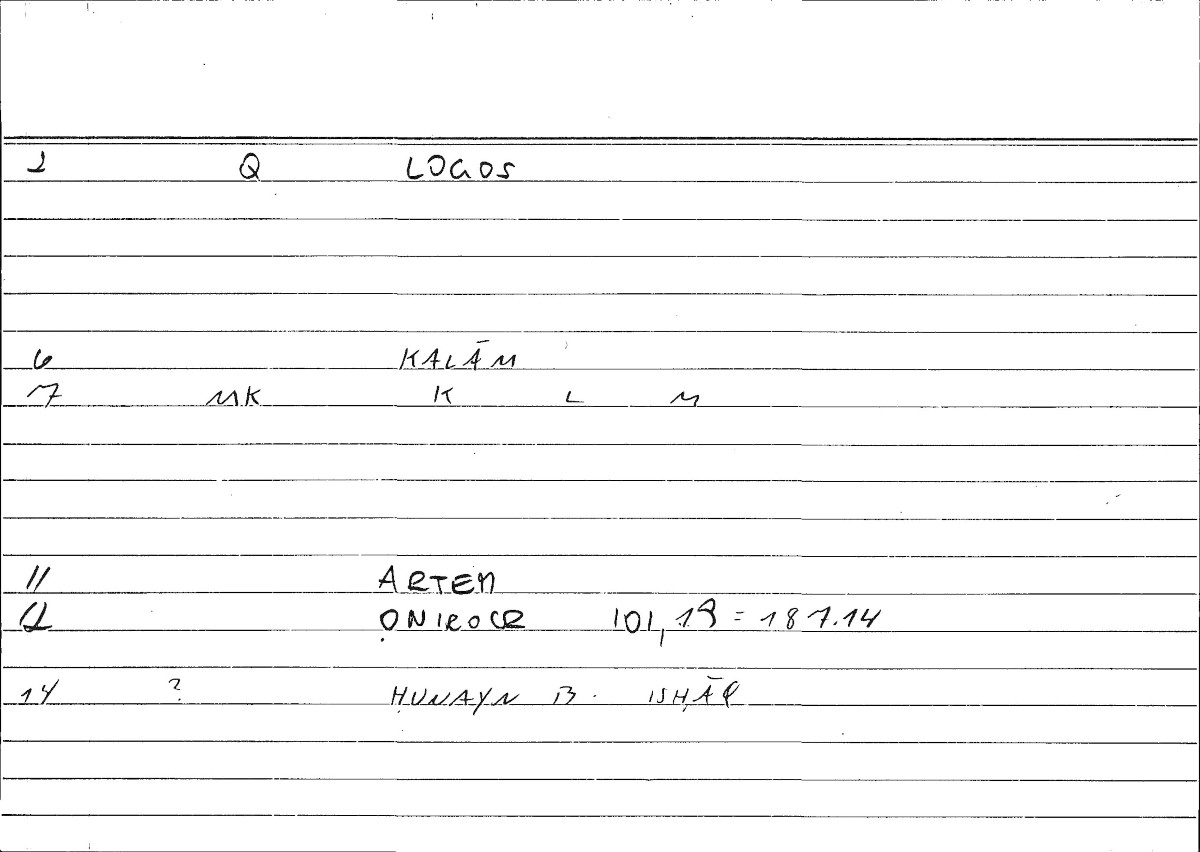 2 Q LOGOS
6 KALĀM
7 MK K L M
11 ARTEM
12 ONIROCR 101,19 = 187.14
14 ? ḤUNAYN B. ISḤĀQ